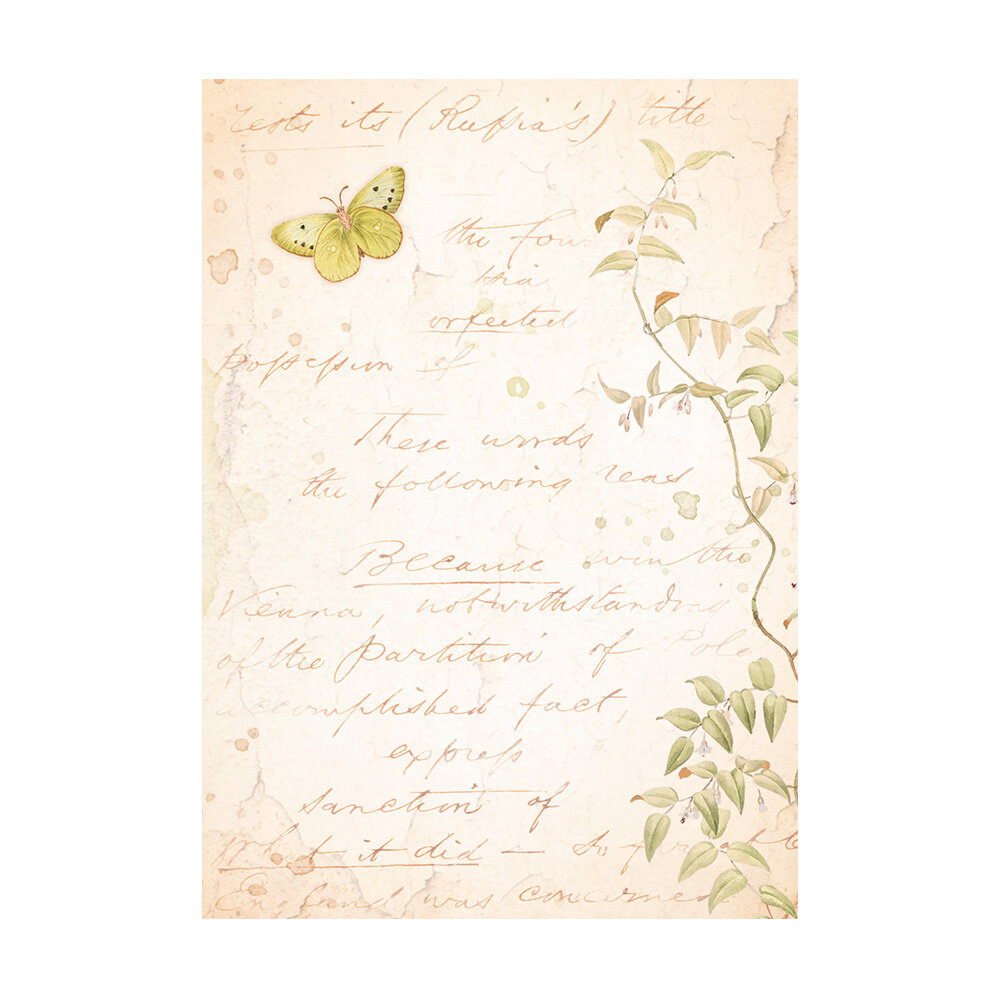 rests its (Ruſsia's) title
the fou
ssia
possession of
These words
the following reas
Because the
Vienna, notwithstanding
of the Partition of Pola
accomplished fact,
expreſs
sanction of
what it did — so far as
England was concerned